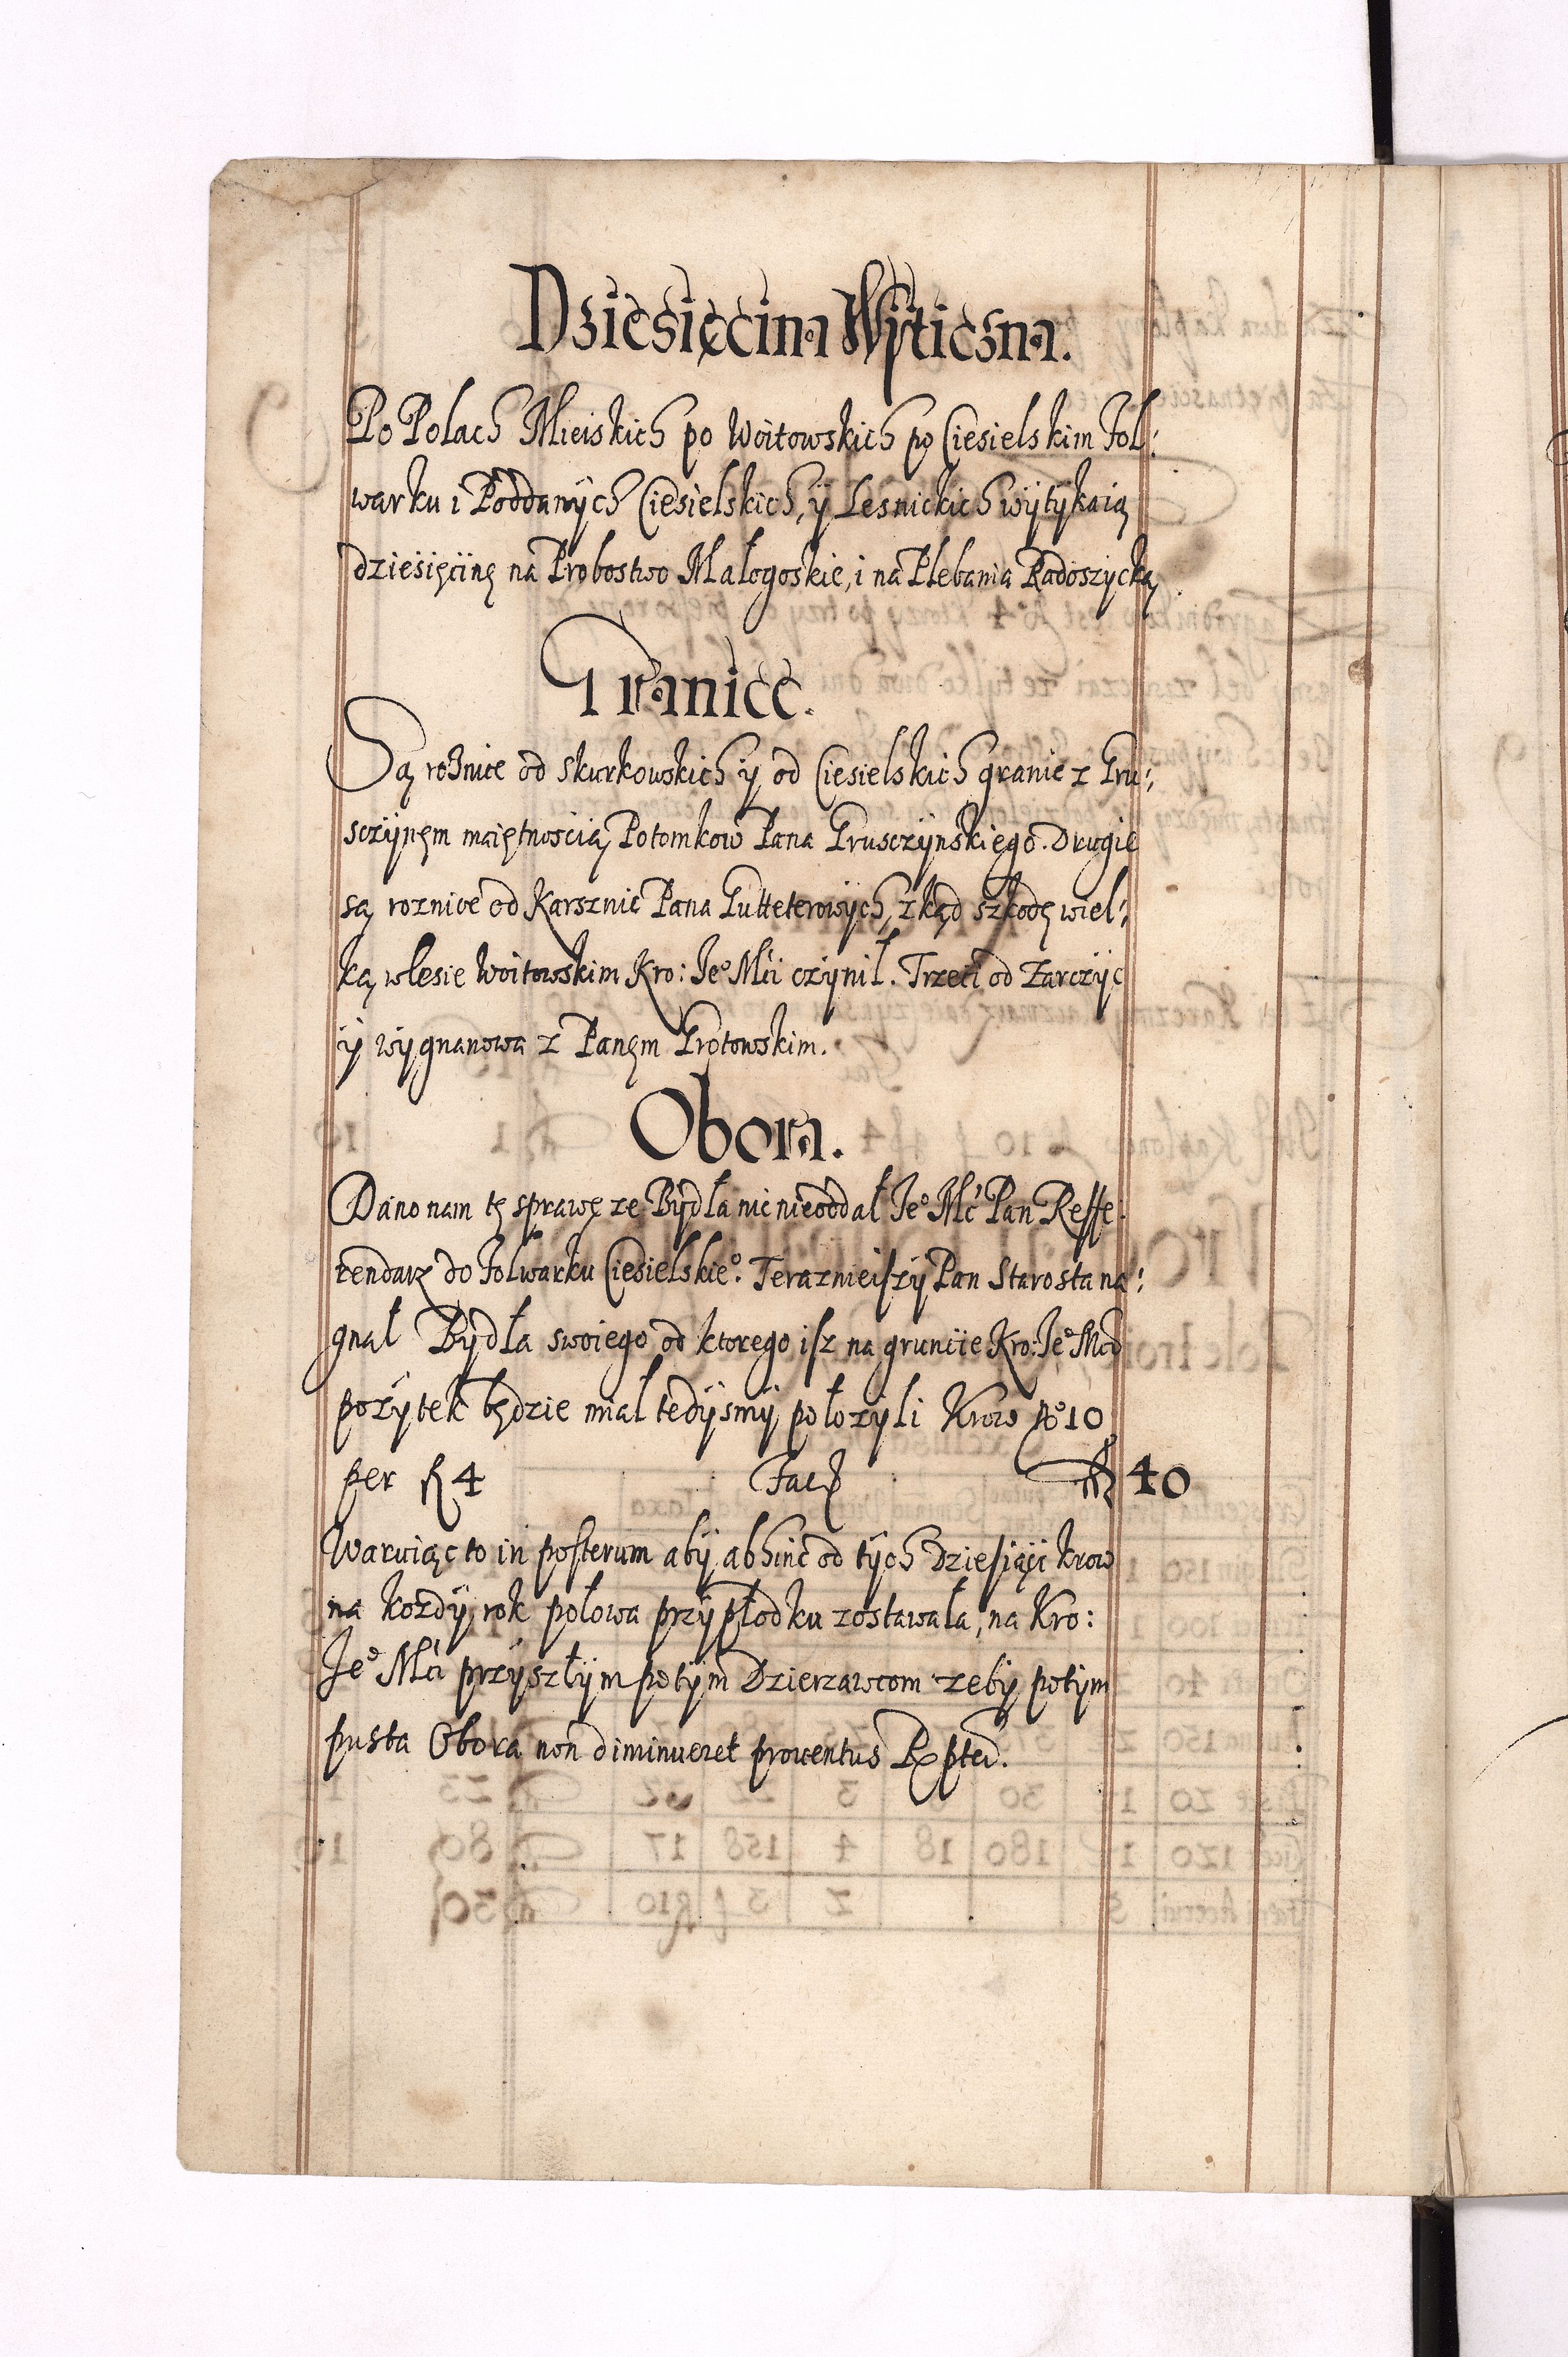 Dziesięcina Wÿticzna.
Po Polach Mieiskich po Woitowskich po Ciesielskim Fol:
warku i Poddanÿch Ciesielskich, ÿ Lesnickich wÿtÿkaią
dziesięcinę na Probostwo Małogoskie, i na Plebania Radoszycką
Granice.
Są rożnice od Skurkowskich ÿ od Ciesielskich granic z Gru:
sczÿnęm maiętnoscią Potomkow Pana Grusczÿnskiego. Drugie
są roznice od Karsznic Pana Gutteterowÿch, zkąd szkodę wiel:
ką w lesie Woitowskim Kro: Jeº Mći czÿnił. Trzeci od Zarczÿc
ÿ wÿgnanowa z Panęm Grotowskim.
Obora.
Dano nam tę sprawę ze Bÿdła nic nieoddał Jeº Mć Pan Reffe:
rendarz do Folwarku Ciesielskieº. Teraznieiszÿ Pan Starosta na:
gnał Bÿdła swoiego od ktorego isz na gruncie Kro: Jeº Mći
pozÿtek będzie miał tedÿsmÿ połozÿli Krow Nº 10
per fl 4 Facit fl 40
Waruiąc to in posterum abÿ abhinc od tÿch Dziesiąći krow
na kozdÿ rok połowa przÿpłodku zostawała, na Kro:
Jeº Mći przÿszłÿm potÿm Dzierzawcom zebÿ potÿm
pusta Obora non diminueret prouentus